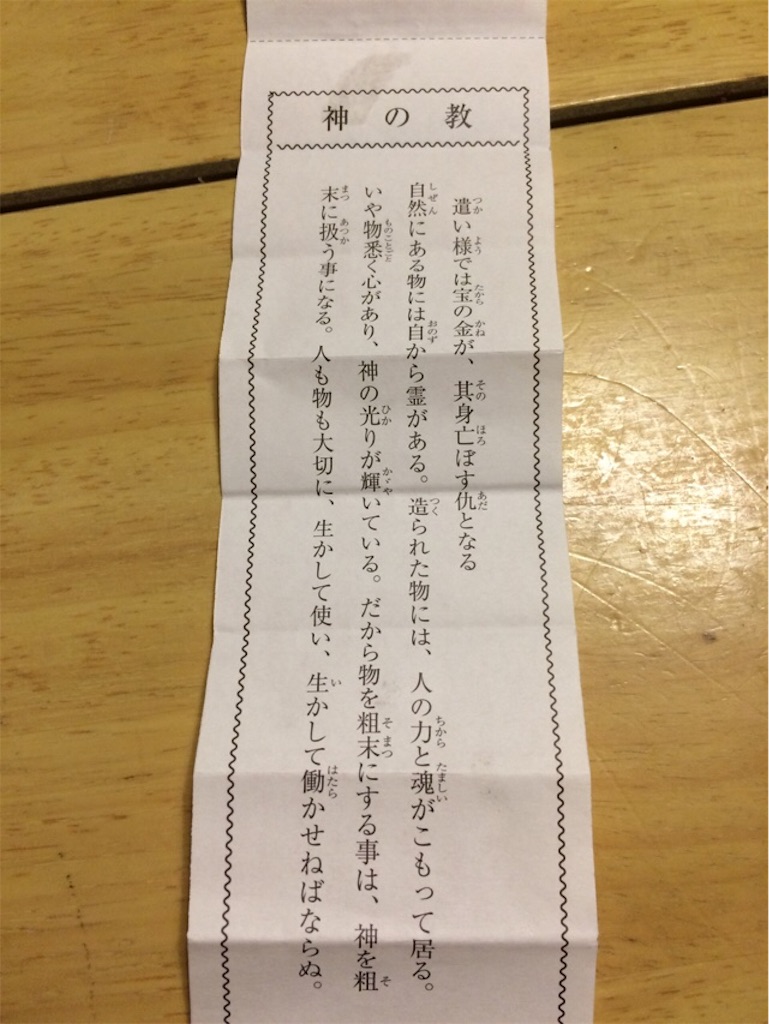 神の教
遣い様では宝の金が、其身亡ぼす仇となる
自然にある物には自から霊がある。造られた物には、人の力と魂がこもって居る。
いや物悉く心があり、神の光りが輝いている。だから物を粗末にする事は、神を粗
末に扱う事になる。人も物も大切に、生かして使い、生かして働かせねばならぬ。